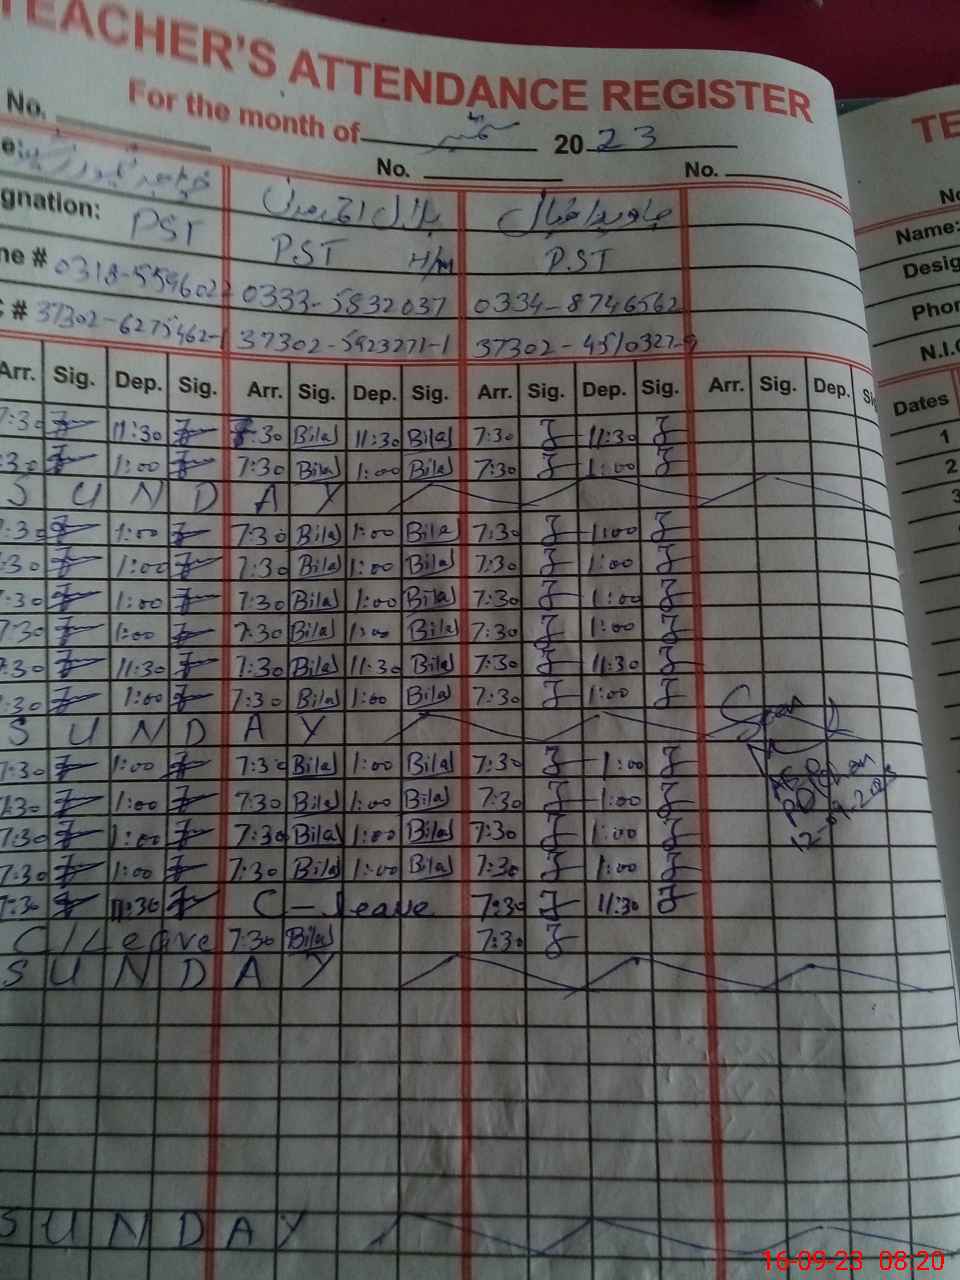 TEACHER'S ATTENDANCE REGISTER
For the month of 2023
No. No. No.
بلال جاوید اقبال
ignation: PST PST H/M PST
ne # 0333-5832037 0334-8746562
# 37302-6275462-1 37302-5923271-1 37302-4510327-9
Arr. Sig. Dep. Sig. Arr. Sig. Dep. Sig. Arr. Sig. Dep. Sig. Arr. Sig. Dep.
7:30 11:30 7:30 Bilal 11:30 Bilal 7:30 11:30
:30 1:00 7:30 Bilal 1:00 Bilal 7:30 1:00
SUNDAY
7:30 1:00 7:30 Bilal 1:00 Bilal 7:30 1:00
:30 1:00 7:30 Bilal 1:00 Bilal 7:30 1:00
:30 1:00 7:30 Bilal 1:00 Bilal 7:30 1:00
7:30 1:00 7:30 Bilal 1:00 Bilal 7:30 1:00
7:30 11:30 7:30 Bilal 11:30 Bilal 7:30 11:30
7:30 1:00 7:30 Bilal 1:00 Bilal 7:30 1:00
SUNDAY
Seen
7:30 1:00 7:30 Bilal 1:00 Bilal 7:30 1:00
7:30 1:00 7:30 Bilal 1:00 Bilal 7:30 1:00
7:30 1:00 7:30 Bilal 1:00 Bilal 7:30 1:00
12-09-2023
7:30 1:00 7:30 Bilal 1:00 Bilal 7:30 1:00
7:30 11:30 C-leave 7:30 11:30
C/Leave 7:30 Bilal 7:30
SUNDAY
SUNDAY
TE
No
Name:
Desig
Phon
N.I.C
Dates
1
2
3
16-09-23 08:20